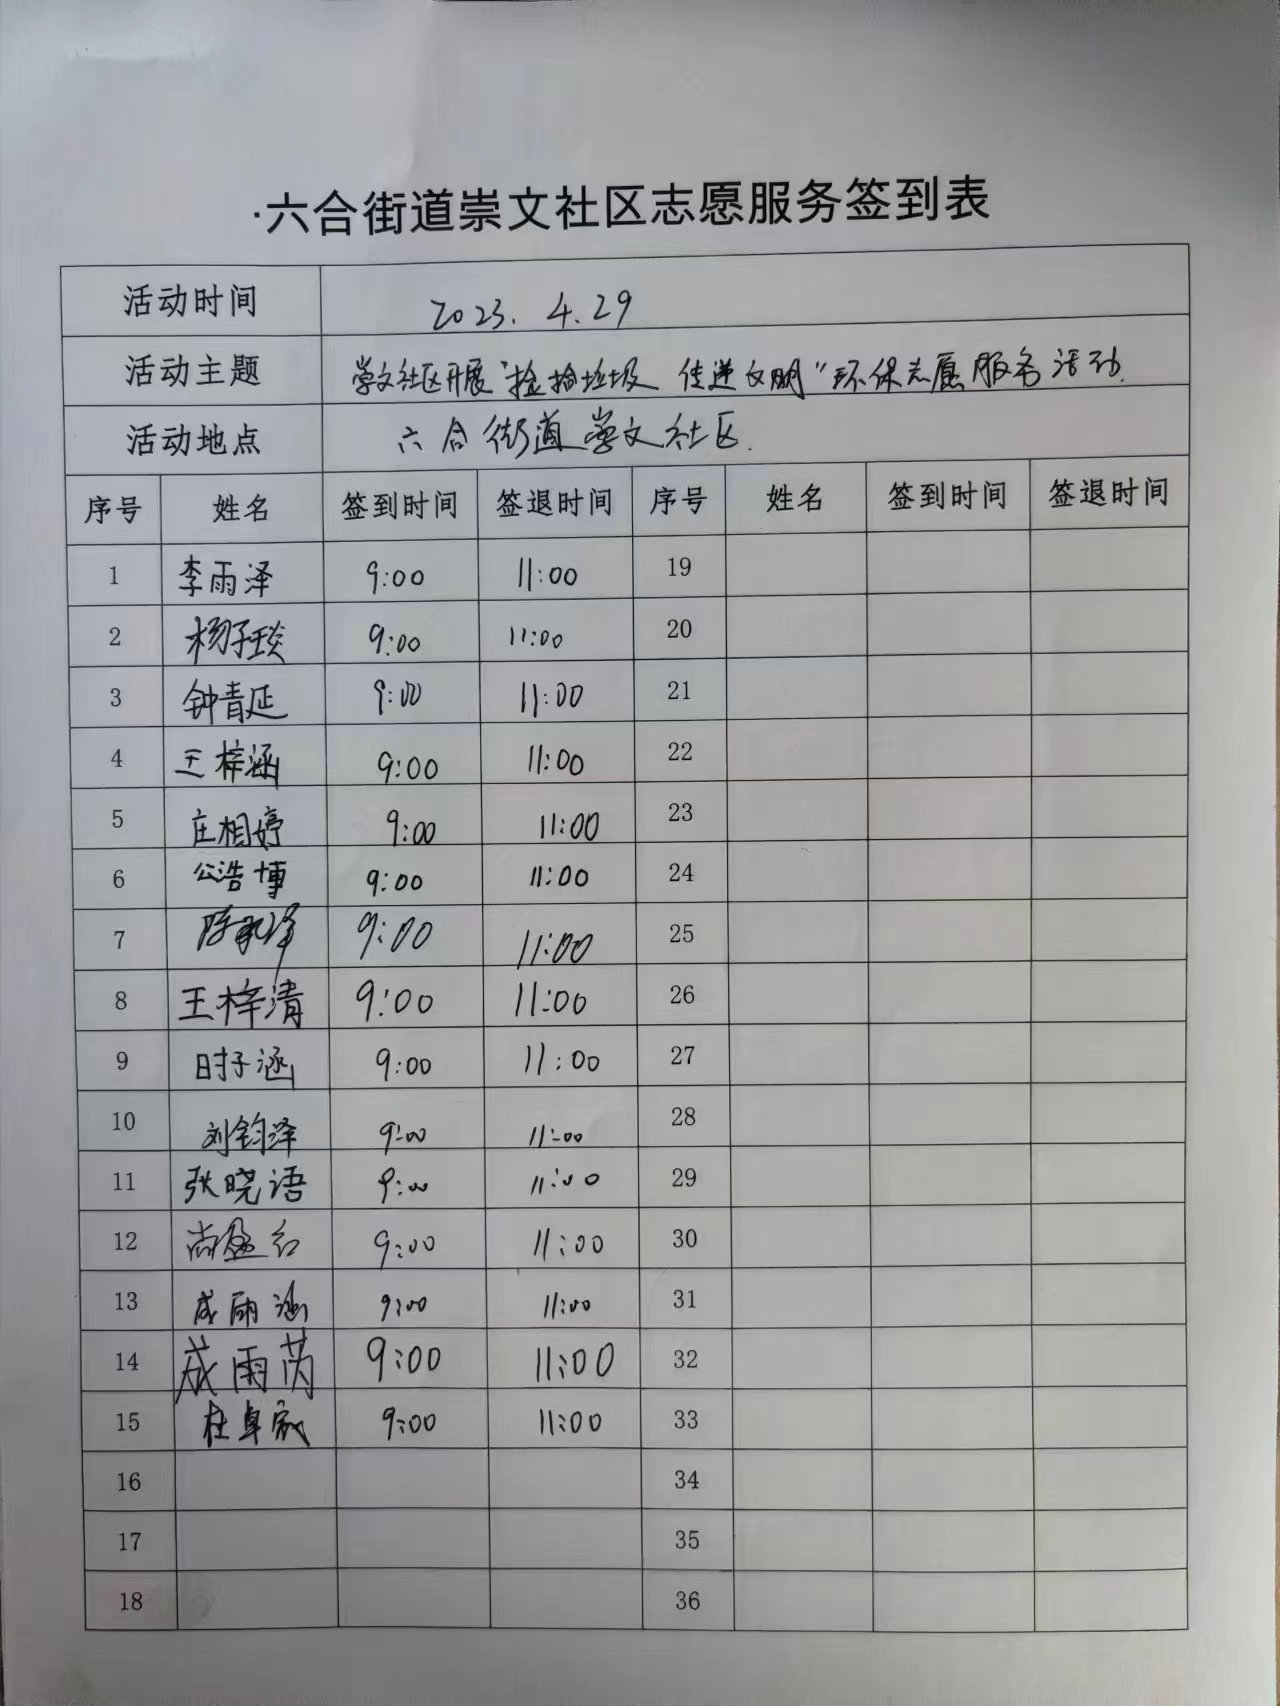 ·六合街道崇文社区志愿服务签到表
活动时间 2023.4.29
活动主题 崇文社区开展“捡拾垃圾 传递文明”环保志愿服务活动.
活动地点 六合街道崇文社区.
序号 姓名 签到时间 签退时间 序号 姓名 签到时间 签退时间
1 李雨泽 9:00 11:00 19
2 杨子琰 9:00 11:00 20
3 钟青延 9:00 11:00 21
4 王梓涵 9:00 11:00 22
5 庄相婷 9:00 11:00 23
6 公浩博 9:00 11:00 24
7 9:00 11:00 25
8 王梓清 9:00 11:00 26
9 时子涵 9:00 11:00 27
10 刘钧泽 9:00 11:00 28
11 张晓语 9:00 11:00 29
12 尚盈 9:00 11:00 30
13 成雨涵 9:00 11:00 31
14 成雨芮 9:00 11:00 32
15 杜卓 9:00 11:00 33
16 34
17 35
18 36